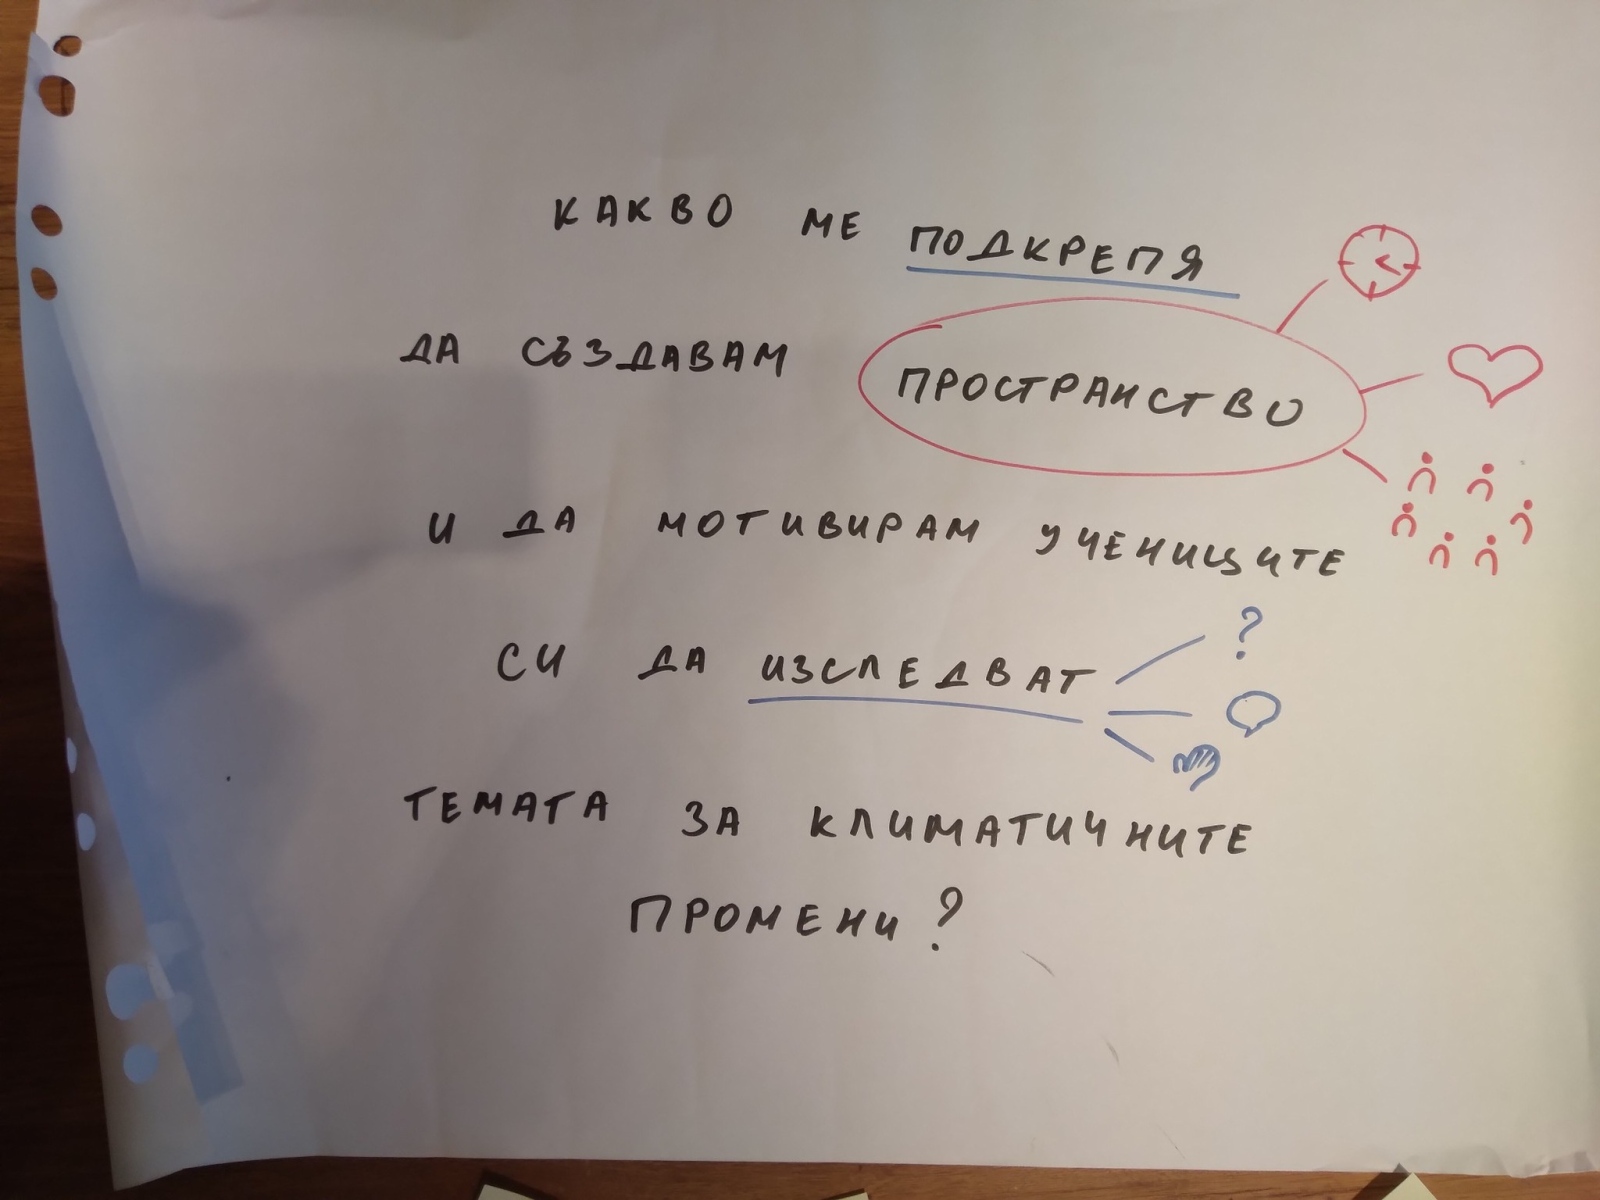 КАКВО МЕ ПОДКРЕПЯ
ДА СЪЗДАВАМ ПРОСТРАНСТВО
И ДА МОТИВИРАМ УЧЕНИЦИТЕ
СИ ДА ИЗСЛЕДВАТ ?
ТЕМАТА ЗА КЛИМАТИЧНИТЕ
ПРОМЕНИ?